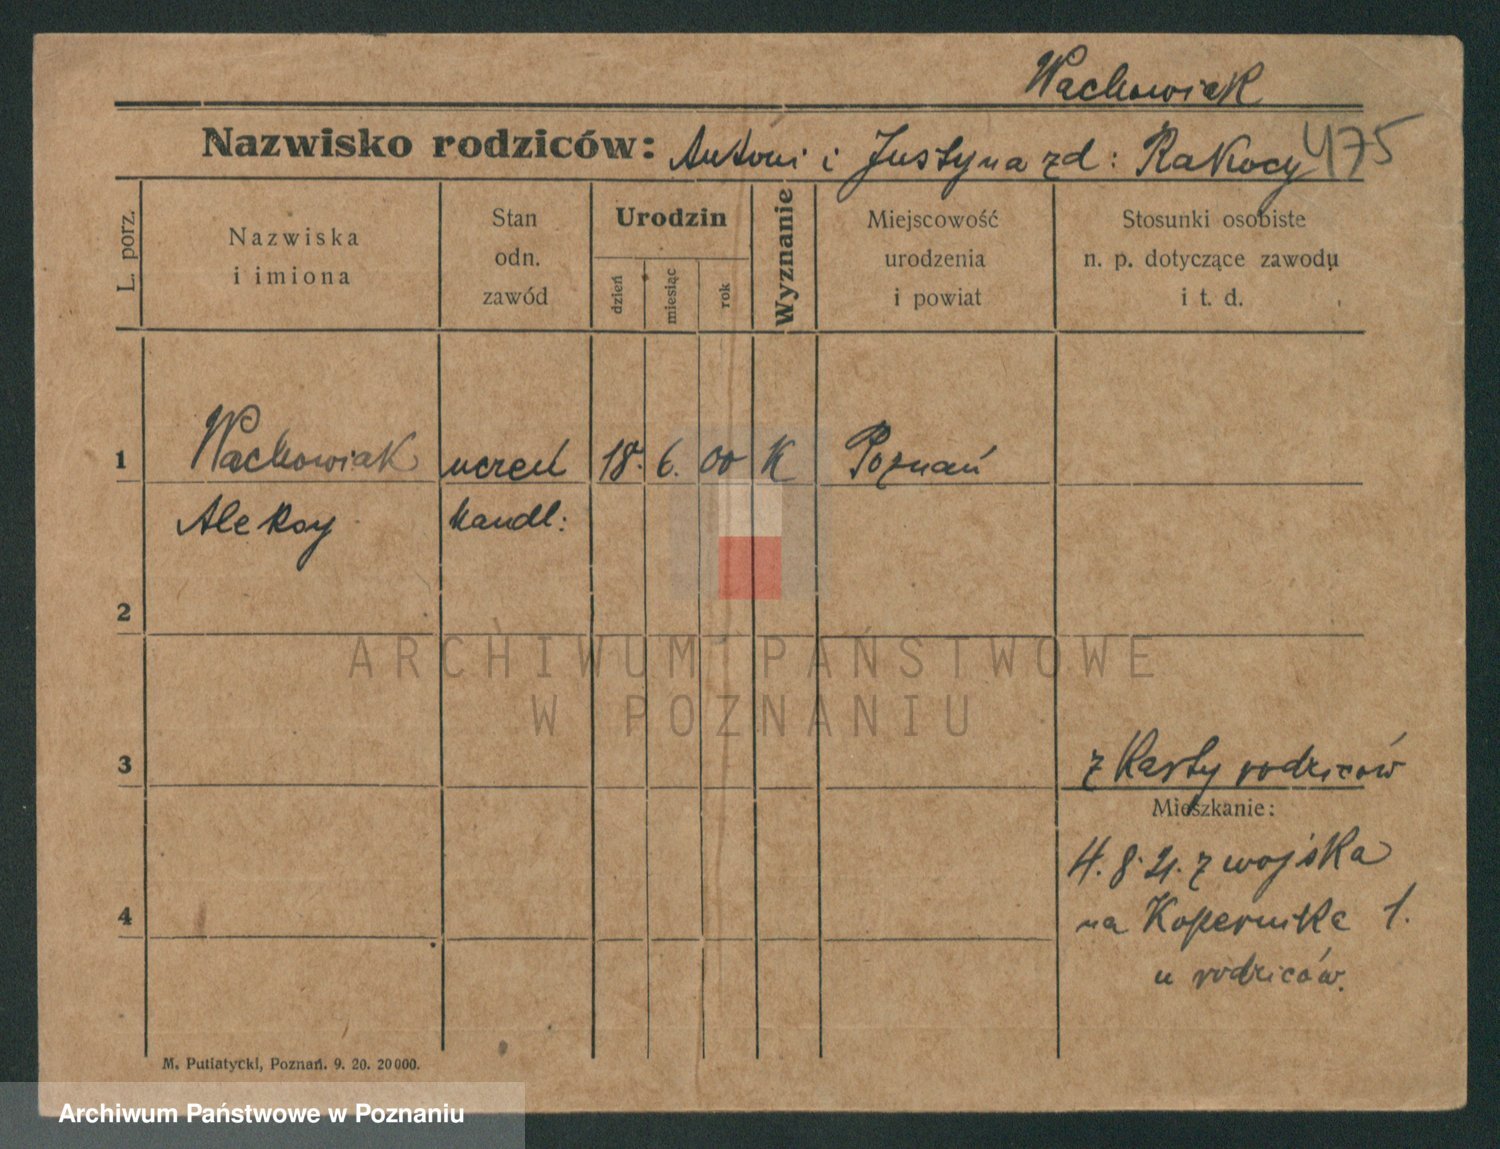 Wachowiak
Nazwisko rodziców: Antoni i Justyna zd: Rakocy 475
L. porz.
Nazwiska
i imiona
Stan
odn.
zawód
Urodzin
dzień
miesiąc
rok
Wyznanie
Miejscowość
urodzenia
i powiat
Stosunki osobiste
n. p. dotyczące zawodu
i t. d.
1 Wachowiak uczeń 18. 6. 00 K Poznań
Aleksy handl:
2
ARCHIWUM PAŃSTWOWE
W POZNANIU
3
z karty rodziców
Mieszkanie:
4. 8. 21. z wojska
4
na Kopernika 1.
u rodziców.
M. Putiatycki, Poznań. 9. 20. 20000.
Archiwum Państwowe w Poznaniu